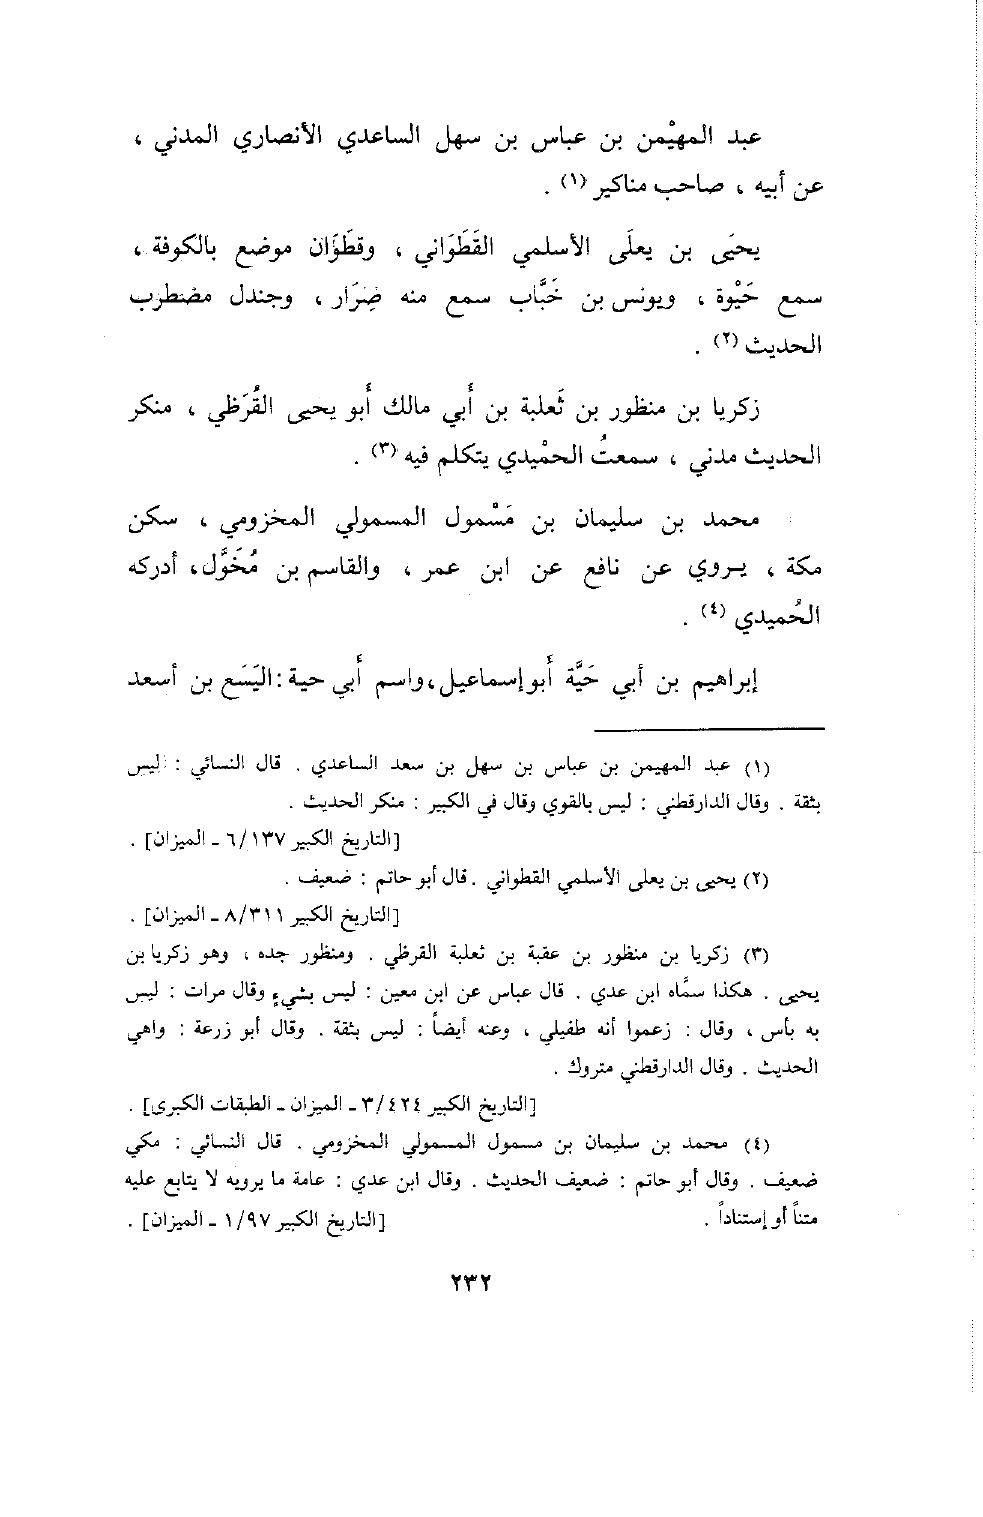 عبد المهيْمن بن عباس بن سهل الساعدي الأنصاري المدني ،
عن أبيه ، صاحب مناكير (١) .
يحيَى بن يعلَى الأسلمي القَطَوَاني ، وقطَوَان موضع بالكوفة ،
سمع حَيْوة ، ويونس بن خَبَّاب سمع منه ضِرَار ، وجندل مضطرب
الحديث (٢) .
زكريا بن منظور بن ثَعلبة بن أَبي مالك أَبو يحيى القُرَظي ، منكر
الحديث مدني ، سمعتُ الحمْيدي يتكلم فيه (٣) .
محمد بن سليمان بن مَسْمول المسمولي المخزومي ، سكن
مكة ، يروي عن نافع عن ابن عمر ، والقاسم بن مُخَوَّل، أدركه
الحُميدي (٤) .
إبراهيم بن أبي حَيَّة أَبو إسماعيل، واسم أَبي حية : اليَسَع بن أسعد
(١) عبد المهيمن بن عباس بن سهل بن سعد الساعدي . قال النسائي : ليس
بثقة . وقال الدارقطني : ليس بالقوي وقال في الكبير : منكر الحديث .
[التاريخ الكبير ٦/١٣٧ ـ الميزان] .
(٢) يحيى بن يعلى الأسلمي القطواني . قال أبو حاتم : ضعيف .
[التاريخ الكبير ٨/٣١١ ـ الميزان] .
(٣) زكريا بن منظور بن عقبة بن ثعلبة القرظي . ومنظور جده ، وهو زكريا بن
يحيى . هكذا سمَّاه ابن عدي . قال عباس عن ابن معين : ليس بشيءٍ وقال مرات : ليس
به بأس ، وقال : زعموا أنه طفيلي ، وعنه أيضاً : ليس بثقة . وقال أبو زرعة : واهي
الحديث . وقال الدارقطني متروك .
[التاريخ الكبير ٣/٤٢٤ ـ الميزان ـ الطبقات الكبرى] .
(٤) محمد بن سليمان بن مسمول المسمولي المخزومي . قال النسائي : مكي
ضعيف . وقال أبو حاتم : ضعيف الحديث . وقال ابن عدي : عامة ما يرويه لا يتابع عليه
متناً أو إستناداً . [التاريخ الكبير ١/٩٧ ـ الميزان] .
٢٣٢